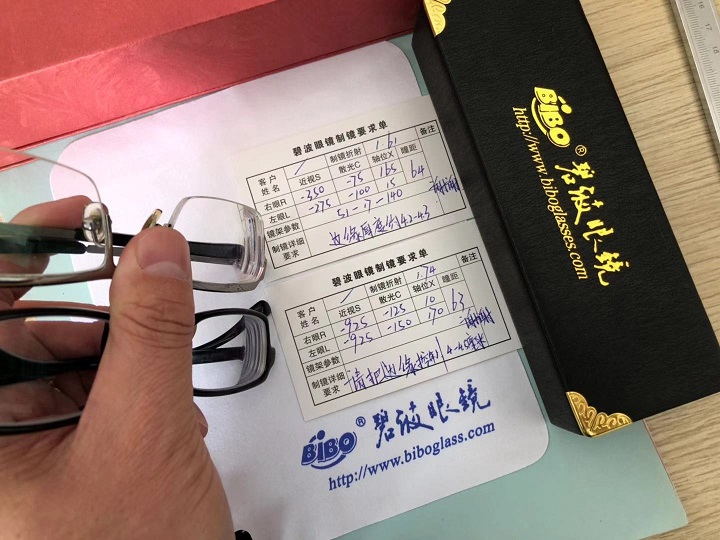 碧波眼镜制镜要求单
客户姓名 制镜折射 1.61 备注
近视S 散光C 轴位X 瞳距
右眼R -350 -75 165 64
左眼L -275 -100 15
镜架参数 51-17-140
制镜详细要求 边缘厚度约4.2-4.3
碧波眼镜制镜要求单
客户姓名 制镜折射 1.74 备注
近视S 散光C 轴位X 瞳距
右眼R -925 -125 10 63
左眼L -925 -150 170
镜架参数
制镜详细要求 请把边缘控制 4-4.5毫米
BiBO ® 碧波眼镜
http://www.biboglass.com
BiBO ® 碧波眼镜
http://www.biboglasses.com
16
17